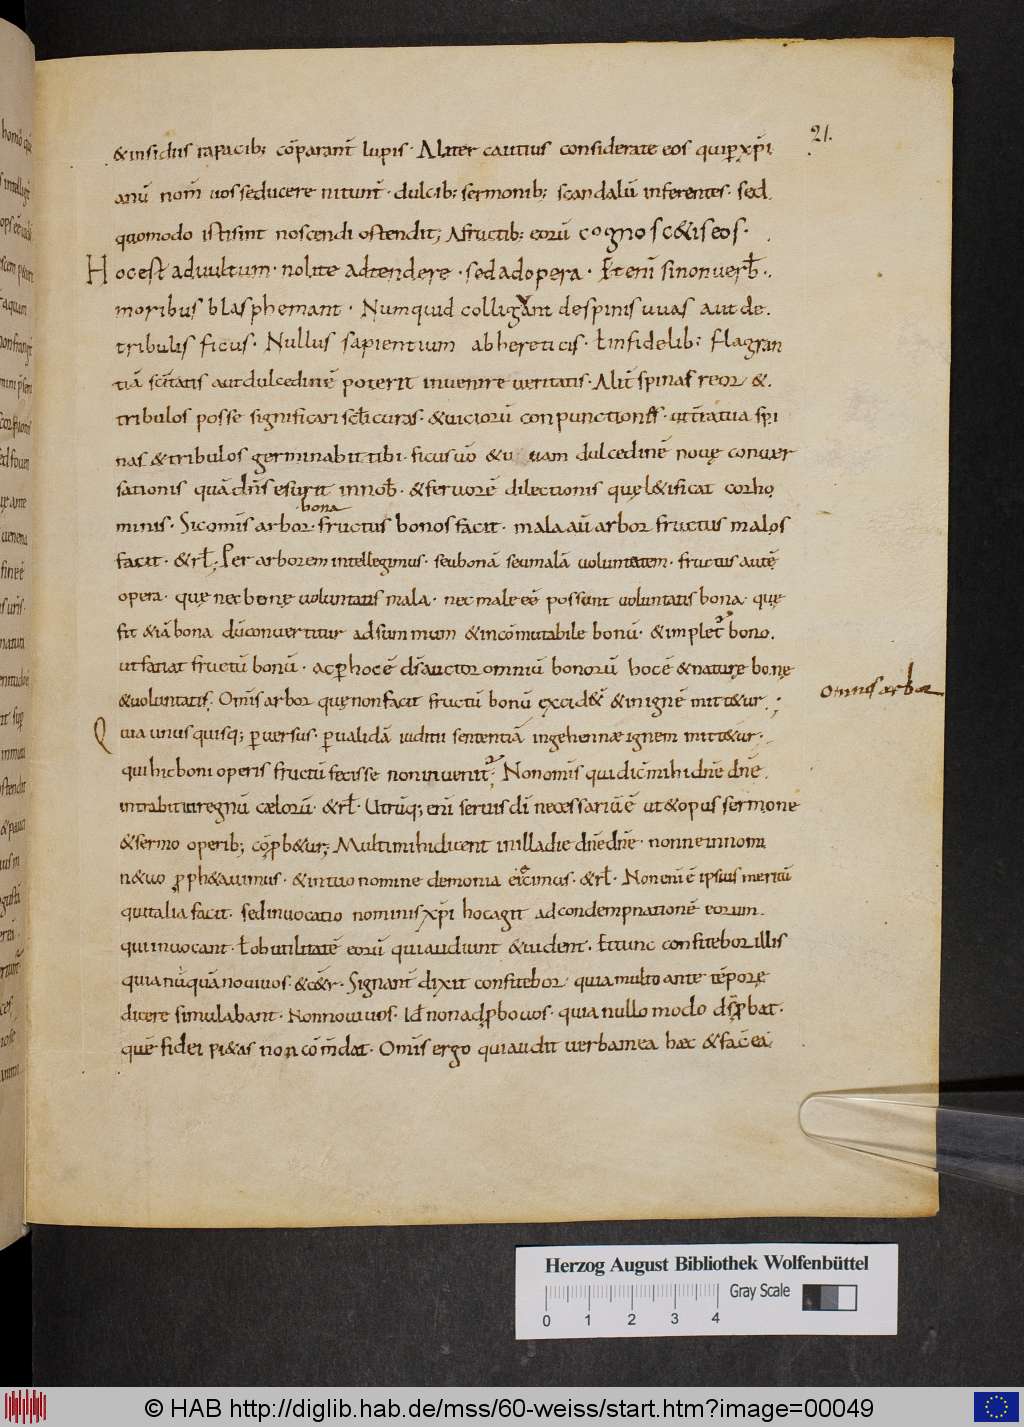 21.
&insidiis rapacib; cōparant̄ lupis· Aliter cautius considerate eos qui p̱ xp̄i
anū nom̄ uos seducere nitunt̄· dulcib; sermonib; scandalū inferentes· sed
quomodo isti sint noscendi ostendit; A fructib; eorū cognosc&is eos·
Hoc est ad uultum· nolite adtendere· sed ad opera· Et enī si non uerƀ·
moribus blasphemant· Numquid colligant de spinis uuas aut de
tribulis ficus· Nullus sapientium ab hereticis· ł infidelib; flagran
tiā sc̄itatis aut dulcedinē poterit inuenire ueritatis· Alit̄ spinas reor &
tribulos posse significari sc̄li curas· & uiciorū conpunctiones· ut t̄ra tua spi
nas & tribulos germinabit tibi· ficus uō & uuam dulcedinē nouę conuer
sationis quā dn̄s esurit in noƀ· & feruorē dilectionis quę l&ificat cor ho
minis· Sic om̄is arbor bona fructus bonos facit· mala aū arbor fructus malos
facit· & rł; Per arborem intellegimus· seu bonā seu malā uoluntatem· fructus autē
opera· quę nec bonę uoluntatis mala· nec male eē possunt uoluntatis bona· quę
fit & iā bona dū conuertitur ad summum & incōmutabile bonū· & implet̄ bono·
ut faciat fructū bonū· ac p̱ hoc ē dī auctor omniū bonorū hoc ē & naturę bonę
& uoluntatis· Om̄is arbor quę non facit fructū bonū excid&̄ & in ignē mitt&ur·;
omnis arbor
Quia unusquisq; p̱uersus· p̱ ualidā iudicii sententiā in gehennæ ignem mitt&ur·
qui hic boni operis fructū fecisse non inuenit̄· Non om̄is qui dic̄ mihi dn̄e dn̄e
intrabit in regnū cælorū· & rł· Utrūq; enī seruis dī necessariū ē ut & opus sermone
& sermo operib; cōp̱b&ur; Multi mihi dicent in illa die dn̄e dn̄e· nonne in nomi
n& uo p̱ph&auimus· & in tuo nomine demonia eiecimus· & rł· Non enī ē ipsius meritū
qui talia facit· sed inuocatio nominis xp̄i hoc agit ad condempnationē eorum
qui inuocant· ł ob utilitatē eorū qui audiunt & uident· Et tunc confitebor illis
quia nūquā noui uos· & c&̄r· Signant̄ dixit confitebor· quia multo ante tēpore
dicere simulabant· Non noui uos· Id̄ non adp̱bo uos· quia nullo modo dī p̱bat·
quē fidei pi&as non cōm̄dat· Om̄is ergo qui audit uerba mea hæc & fac̄ ea
Herzog August Bibliothek Wolfenbüttel
Gray Scale
0 1 2 3 4
© HAB http://diglib.hab.de/mss/60-weiss/start.htm?image=00049